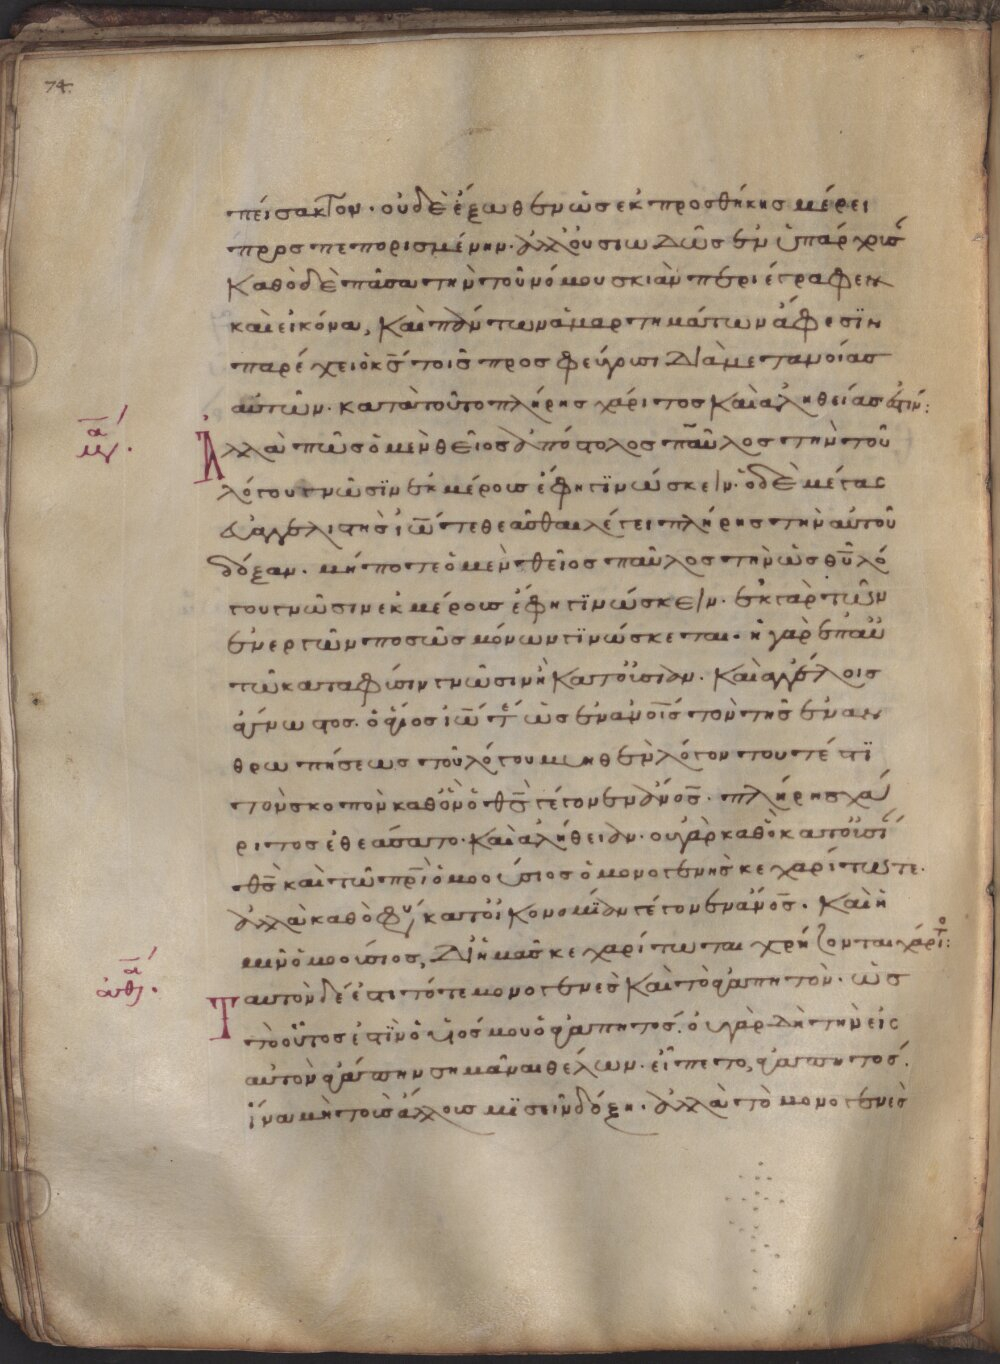 74
πείσακτον. οὐδὲ ἔξωθεν ὡς ἐκ προσθήκης μέρει
προς πεπορισμένην. ἀλλ' οὐσιωδῶς ἐνυπάρχουσ
Καθὸ δὲ πᾶσαν τὴν τοῦ νόμου σκιὰν περιέγραφεν
καὶ εἰκόνα, καὶ πάντων ἁμαρτημάτων ἄφεσϊν
παρέχει ὁ κς τοῖς προσφεύγουσι διὰ μετανοίας
αὐτῶν. κατὰ τοῦτο πλήρης χάριτος καὶ ἀληθείας ἐστίν:
Ἀλλὰ πῶς ὁ μὲν θεῖος ἀπόστολος παῦλος τὴν τοῦ
λόγου γνῶσϊν ἐκ μέρους ἔφη γϊνώσκειν. ὁ δὲ μέγας
εὐαγγελιστὴς ἰω τεθεᾶσθαι λέγει πλήρης τὴν αὐτοῦ
δόξαν. μήποτε ὁ μὲν θεῖος παῦλος τὴν ὡς θυ λό
γου γνῶσιν ἐκ μέρους ἔφη γϊνώσκειν. ἐκ γὰρ τῶν
ἐνεργῶν ποσῶς μόνων γϊνώσκεται. ἡ γὰρ ἐπ' αὐ
τῶ κατὰ φύσιν γνῶσιν ἢ κατ' οὐσίαν. καὶ ἀγγέλοις
ἄγνωστος. ὁ ἅγιος ἰω ὡς ἐν ἀνοις τὸν τῆς ἐναν
θρωπήσεως τοῦ λόγου μυηθεὶς λόγον τουτέστϊ
τὸν σκοπὸν καθ' ὃν ὁ θς γέγονεν ἄνος. πλήρης χά
ριτος ἐθεάσατο. καὶ ἀλήθειαν. οὐ γὰρ καθ' ὃ κατ' οὐσί
θς καὶ τῶ πρι ὁμοούσιος ὁ μονογενὴς κεχαρίτωτε.
ἀλλὰ καθὸ φύ κατ' οἰκονομϊαν γέγονεν ἄνος. καὶ ἡ
μῖν ὁμοούσιος, δι' ἡμᾶς κεχαρίτωται χρήζοντας χάριτο:
Ταυτὸν δέ ἐστι τότε μονογενὲς καὶ τὸ ἀγαπητὸν. ὡς
τὸ οὗτος ἐστϊν ὁ υἱός μου ὁ ἀγαπητός. ὁ γὰρ δὴ τὴν εἰς
αὐτὸν ἀγάπην σημᾶναι θέλων. εἶπε το, ἀγαπητός.
ἵνα μὴ τοῖς ἄλλοις μϊσεῖν δόξη. ἀλλὰ τὸ μονογενὲς